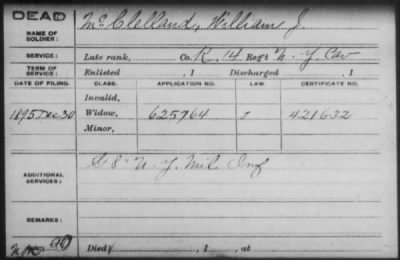 DEAD
NAME OF SOLDIER: McClelland, William J.
SERVICE: Late rank, Co. K, 14 Reg't N. Y. Cav
TERM OF SERVICE: Enlisted , 1 Discharged , 1
DATE OF FILING. CLASS. APPLICATION NO. LAW. CERTIFICATE NO.
Invalid,
1895 Dec 30 Widow, 625764 421632
Minor,
ADDITIONAL SERVICES: G 8" N. Y. Mil. Inf
REMARKS:
Died , 1 , at